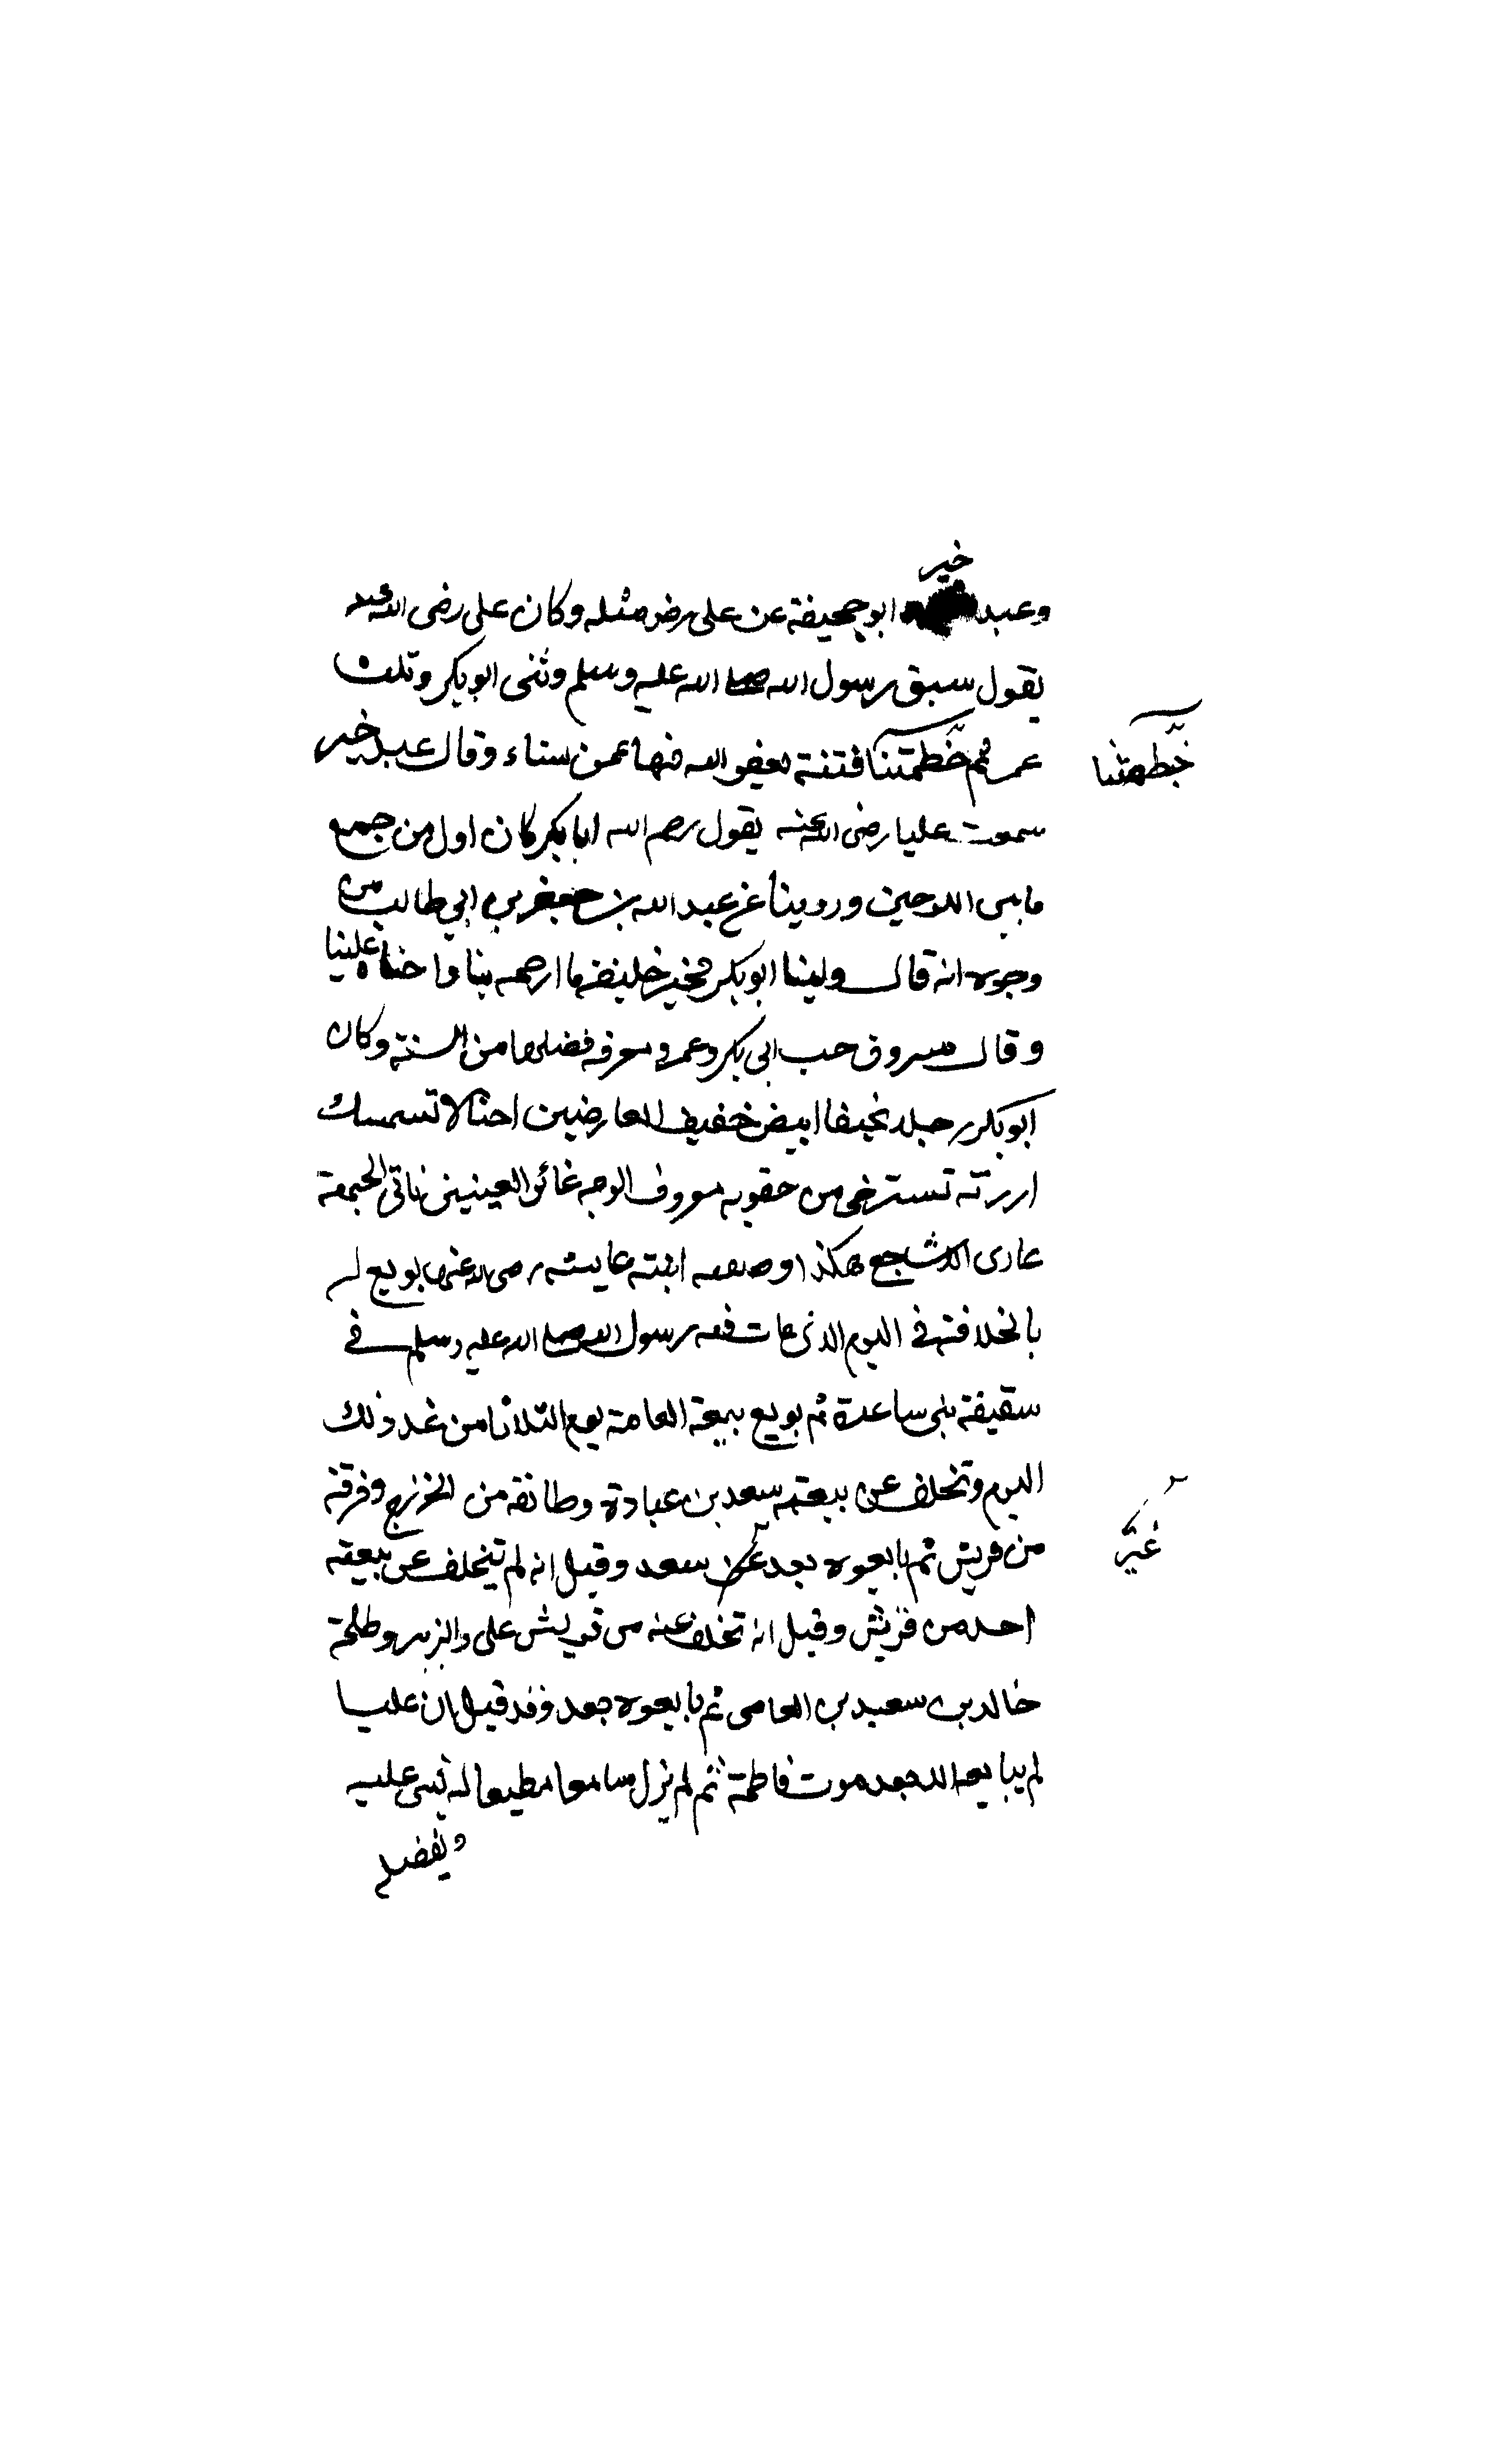 خير
وعبد ابو جحيفة عن على رض مثله وكان على رضى الله عنه
يقول سبق رسول الله صلى الله عليه وسلم وثنى ابو بكر وثلث
عمر ثم خطمتنا فتنة يعفو الله فيها عمن يشاء وقال عبد خير
خبطتنا
سمعت عليا رضى الله عنه يقول رحم الله ابا بكر كان اول من جمع
ما بين اللوحين وروينا عن عبد الله بن جعفر بن ابي طالب من
وجوه انه قال ولينا ابو بكر فخير خليفة ارحمه بنا واحناه علينا
وقال مسروق حب ابى بكر وعمر ومعرفة فضلهما من السنة وكان
ابو بكر رجلا نحيفا ابيض خفيف العارضين احنا لا تستمسك
ازرته تسترخى من حقويه معروف الوجه غائر العينين ناتى الجبهة
عارى الاشجع هكذا وصفته ابنته عايشة رضى الله عنها بويع له
بالخلافة فى اليوم الذى مات فيه رسول الله صلى الله عليه وسلم فى
سقيفة بنى ساعدة ثم بويع بيعة العامة يوم الثلاثا من غد ذلك
اليوم وتخلف عن بيعته سعد بن عبادة وطائفة من الخزرج وفرقة
من قريش ثم بايعوه بعد سعد وقيل انه لم يتخلف عن بيعته
غير
احد من قريش وقيل انه تخلف عنه من قريش على والزبير وطلحة
خالد بن سعيد بن العاصى ثم بايعوه بعد وقد قيل ان عليا
لم يبايعه الا بعد موت فاطمة ثم لم يزل سامعا مطيعا له يثنى عليه
ويفضله